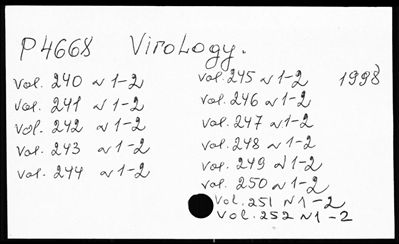 P4668 Virology.
vol. 240 N 1-2
vol. 241 N 1-2
vol. 242 N 1-2
vol. 243 N 1-2
vol. 244 N 1-2
vol. 245 N 1-2 1998
vol. 246 N 1-2
vol. 247 N 1-2
vol. 248 N 1-2
vol. 249 N 1-2
vol. 250 N 1-2
vol. 251 N 1-2
vol. 252 N 1-2